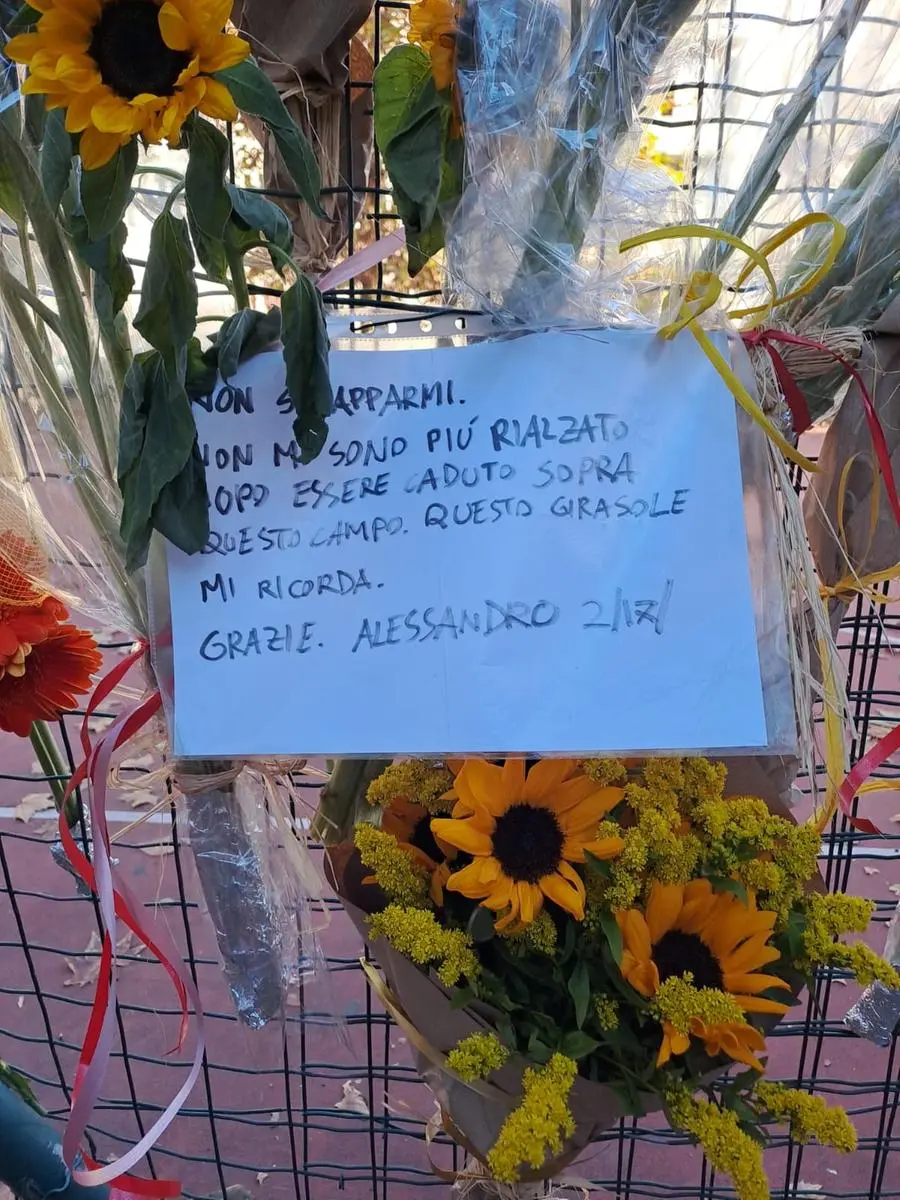 NON STRAPPARMI.
NON MI SONO PIÚ RIALZATO
DOPO ESSERE CADUTO SOPRA
QUESTO CAMPO. QUESTO GIRASOLE
MI RICORDA.
GRAZIE. ALESSANDRO